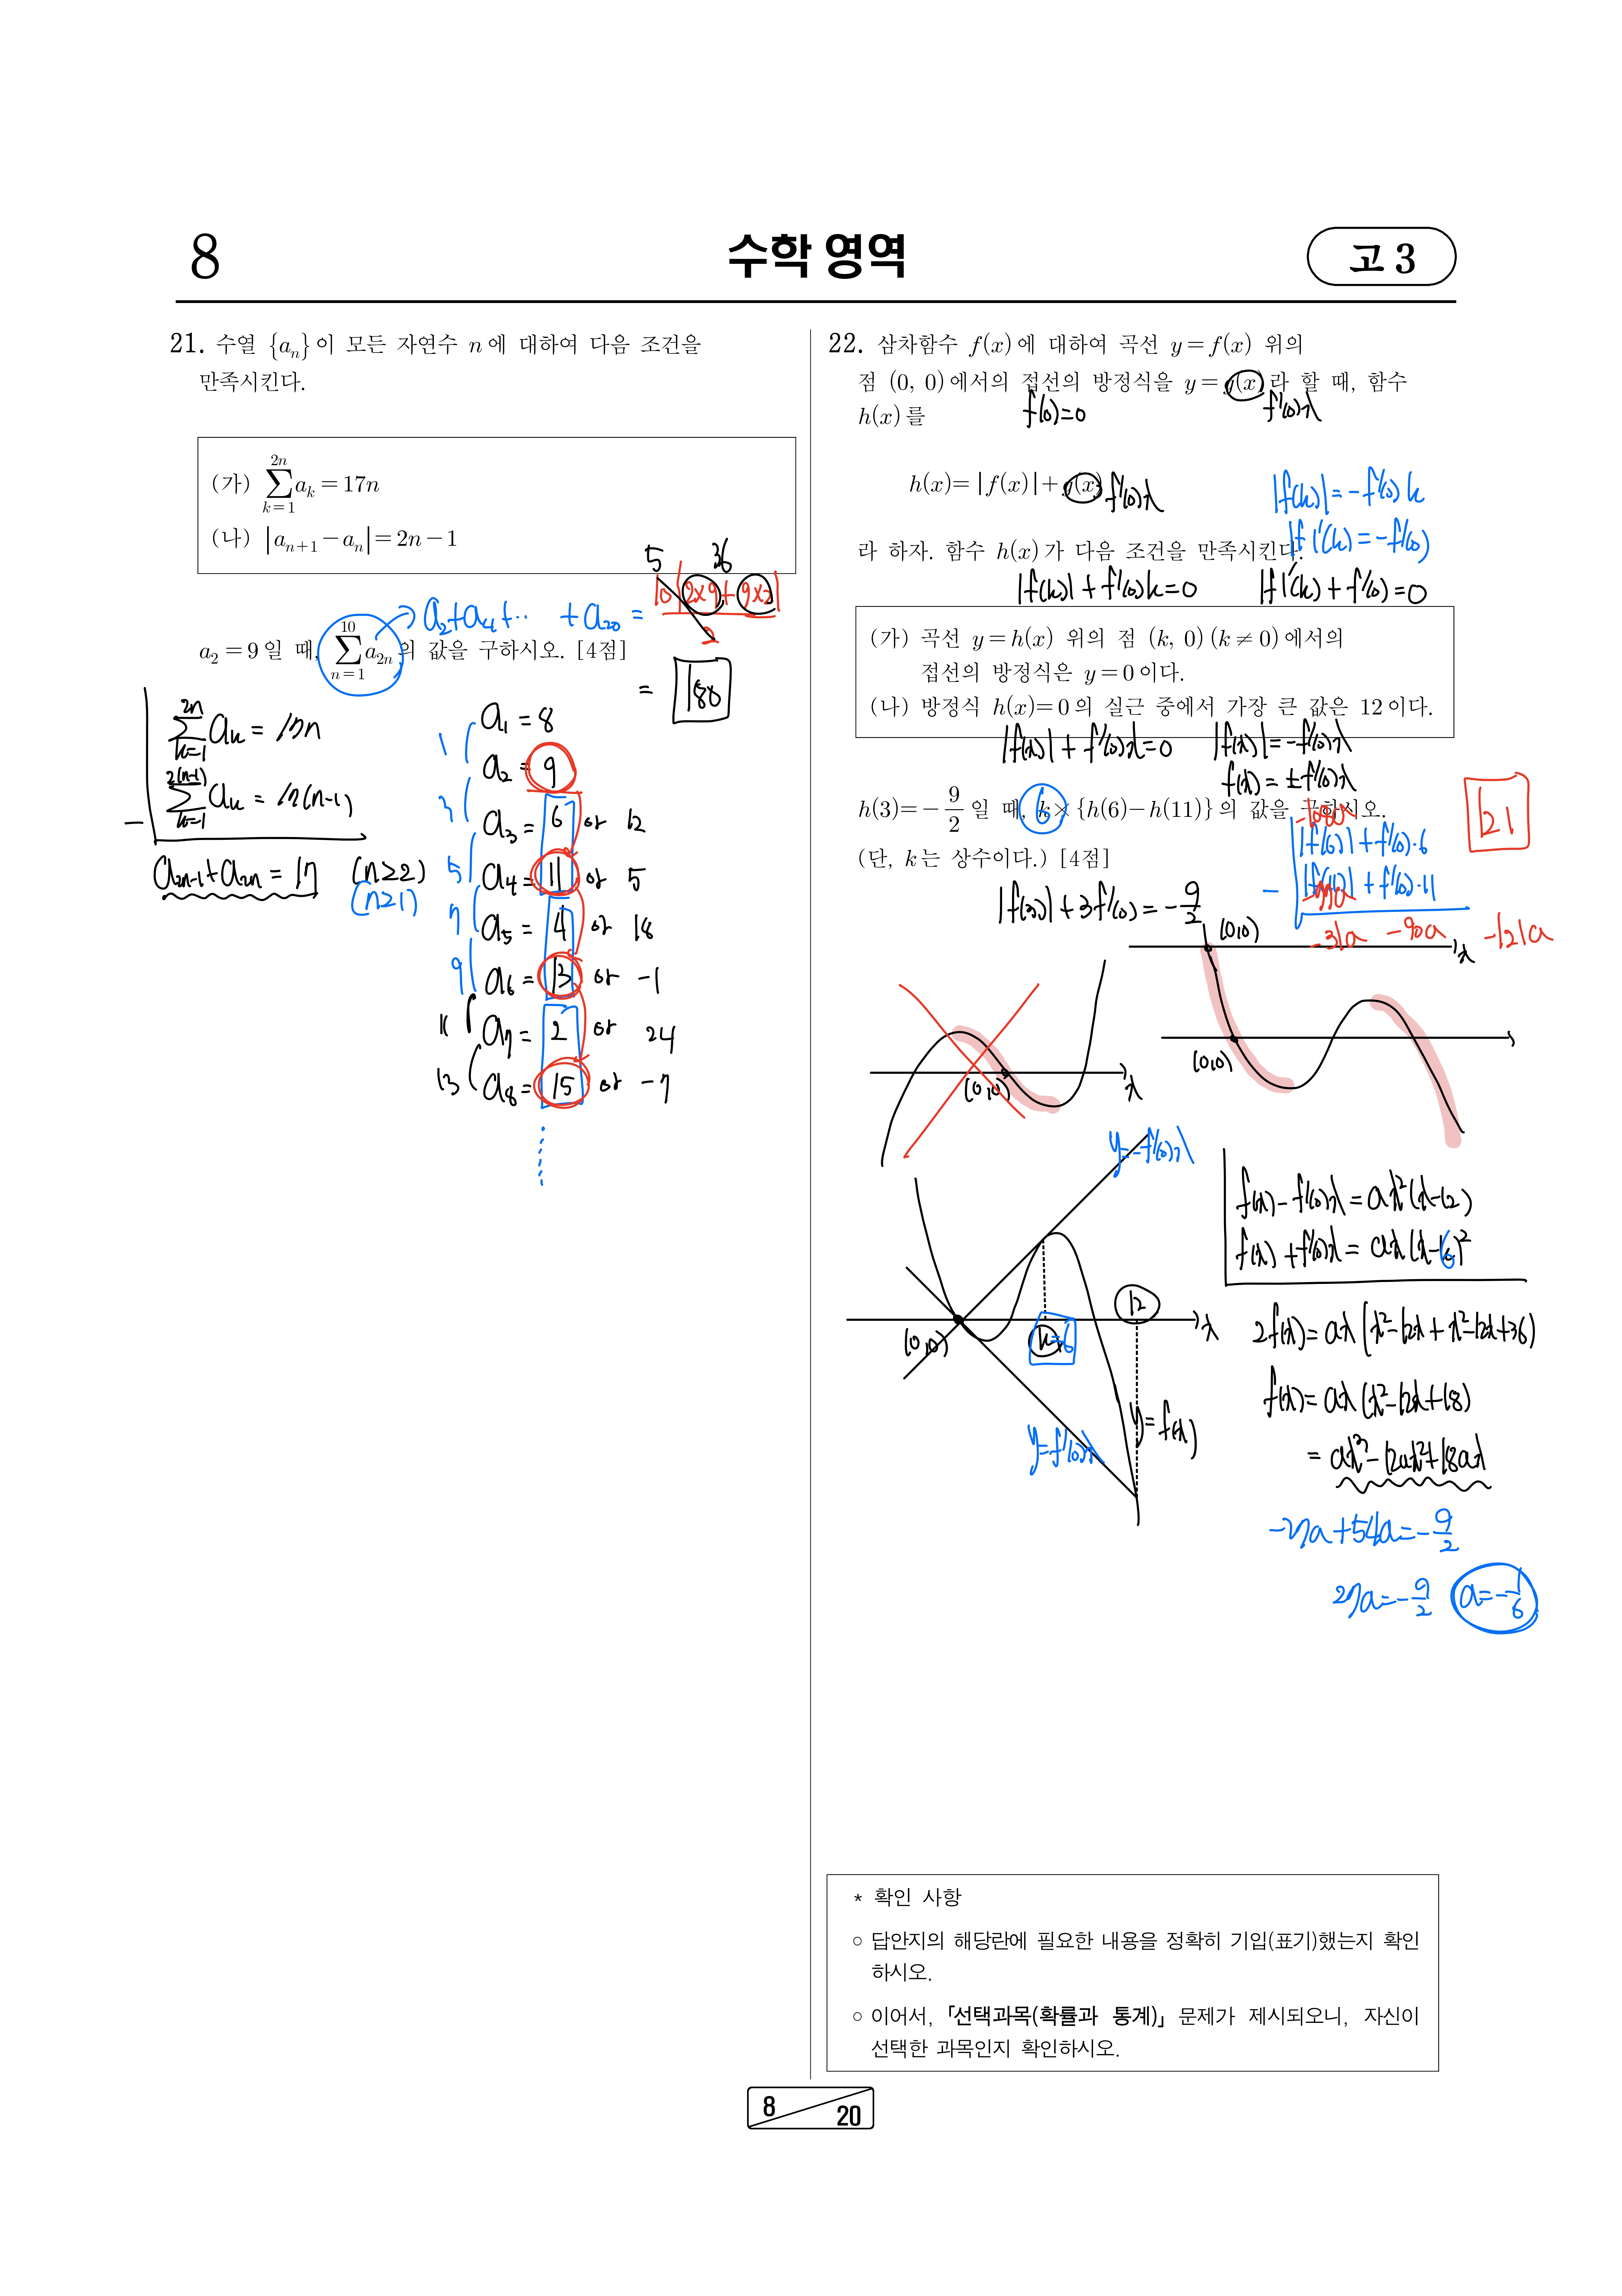 8
수학 영역
고 3
21. 수열 {aₙ}이 모든 자연수 n에 대하여 다음 조건을
만족시킨다.
(가) ∑_{k=1}^{2n} aₖ = 17n
(나) |aₙ₊₁ − aₙ| = 2n − 1
5 36
a₂+a₄+‥ +a₂₀ = 10(2×9+9×2)/2
a₂ = 9일 때, ∑_{n=1}^{10} a₂ₙ의 값을 구하시오. [4점]
= 180
∑_{k=1}^{2n} aₖ = 17n
− ∑_{k=1}^{2(n-1)} aₖ = 17(n-1)
a₂ₙ₋₁+a₂ₙ = 17 (n≥2)
(n≥1)
a₁ = 8
1
a₂ = 9
3
a₃ = 6 or 12
5
a₄ = 11 or 5
7
a₅ = 4 or 18
9
a₆ = 13 or -1
11
a₇ = 2 or 24
13
a₈ = 15 or -7
22. 삼차함수 f(x)에 대하여 곡선 y = f(x) 위의
점 (0, 0)에서의 접선의 방정식을 y = g(x)라 할 때, 함수
f(0)=0 f'(0)x
h(x)를
h(x) = |f(x)| + g(x) f'(0)x
|f(k)| = -f'(0)k
|f|'(k) = -f'(0)
라 하자. 함수 h(x)가 다음 조건을 만족시킨다.
|f(k)| + f'(0)k = 0 |f|'(k) + f'(0) = 0
(가) 곡선 y = h(x) 위의 점 (k, 0) (k ≠ 0)에서의
접선의 방정식은 y = 0이다.
(나) 방정식 h(x) = 0의 실근 중에서 가장 큰 값은 12이다.
|f(x)| + f'(0)x = 0 |f(x)| = -f'(0)x
f(x) = ±f'(0)x
h(3) = − 9/2 일 때, k × {h(6) − h(11)}의 값을 구하시오.
6
121
(단, k는 상수이다.) [4점]
|f(6)| + f'(0)·6
− |f(11)| + f'(0)·11
|f(3)| + 3f'(0) = -9/2
-31a -90a -121a
(0,0) x
(0,0) x
(0,0)
y=-f'(0)x
(0,0) k=6 12 x
y=f(x)
y=f'(0)x
f(x) - f'(0)x = ax²(x-12)
f(x) + f'(0)x = ax(x-6)²
2f(x) = ax(x²-12x+x²-12x+36)
f(x) = ax(x²-12x+18)
= ax³-12ax²+18ax
-27a+54a = -9/2
27a = -9/2 a = -1/6
* 확인 사항
○ 답안지의 해당란에 필요한 내용을 정확히 기입(표기)했는지 확인
하시오.
○ 이어서, 「선택과목(확률과 통계)」 문제가 제시되오니, 자신이
선택한 과목인지 확인하시오.
8 20